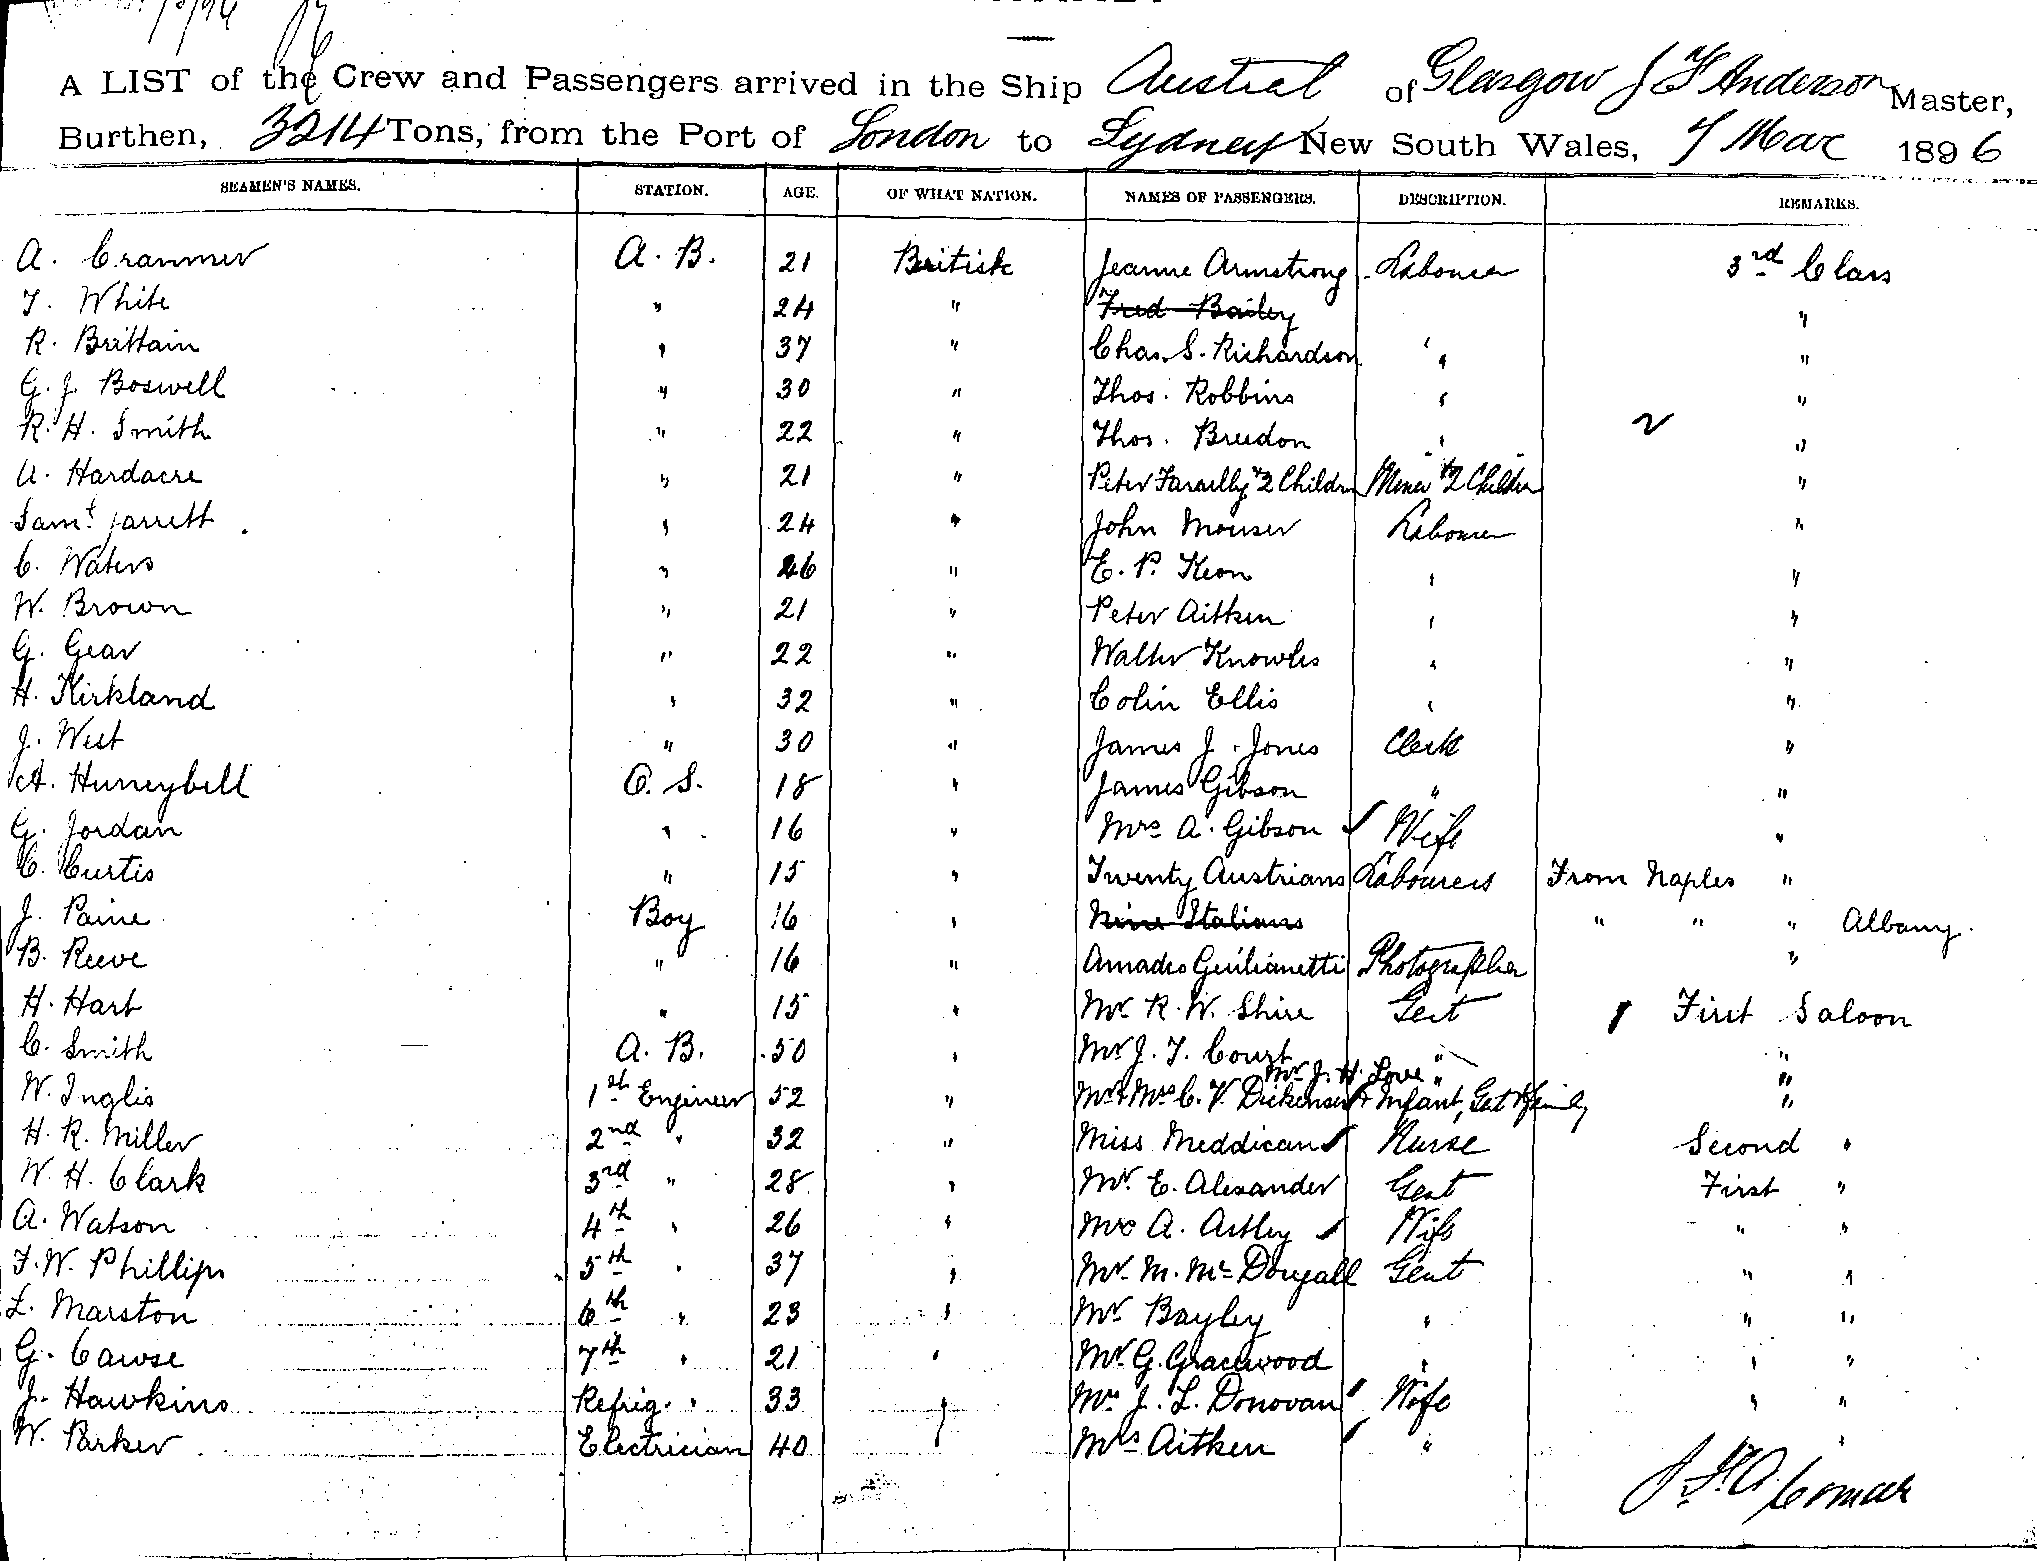 A LIST of the Crew and Passengers arrived in the Ship Austral of Glasgow J F Anderson Master,
Burthen, 3214 Tons, from the Port of London to Sydney New South Wales, 7 Mar 1896
SEAMEN'S NAMES. STATION. AGE. OF WHAT NATION. NAMES OF PASSENGERS. DESCRIPTION. REMARKS.
A. Cranmer A. B. 21 British Jeanne Armstrong Labourer 3rd Class
T. White " 24 " Fred Bailey "
R. Brittain " 37 " Chas. S. Richardson " "
G. J. Boswell " 30 " Thos. Robbins " "
R. H. Smith " 22 " Thos. Breedon " "
A. Hardacre " 21 " Peter Farrelly + 2 Childrn Miner + 2 Childn "
Saml. Jarrett " 24 " John Mouser Labourer "
C. Waters " 26 " E. P. Keon " "
W. Brown " 21 " Peter Aitken " "
G. Gear " 22 " Walter Knowles " "
H. Kirkland " 32 " Colin Ellis " "
J. West " 30 " James J. Jones Clerk "
A. Hunneybell O. S. 18 " James Gibson " "
G. Jordan " 16 " Mrs A. Gibson Wife "
C. Curtis " 15 " Twenty Austrians Labourers From Naples "
J. Paine Boy 16 " Nine Italians " " " Albany.
B. Reeve " 16 " Amadeo Giulianetti Photographer "
H. Hart " 15 " Mr R. W. Shire Gent First Saloon
C. Smith A. B. 50 " Mr J. T. Court " "
Mr J. H. Love " "
W. Inglis 1st Engineer 52 " Mr & Mrs C. V. Dickenson & Infant, Gent & family "
H. R. Miller 2nd " 32 " Miss Meddican Nurse Second "
W. H. Clark 3rd " 28 " Mr. E. Alexander Gent First "
A. Watson 4th " 26 " Mrs A. Astley Wife " "
F. W. Phillips 5th " 37 " Mr. M. Mc Dougall Gent " "
L. Marston 6th " 23 " Mr Bayley " " "
G. Cawse 7th " 21 " Mr G. Gracewood " " "
J. Hawkins Refrig. " 33 " Mrs J. L. Donovan Wife " "
W. Parker Electrician 40 " Mrs Aitken " "